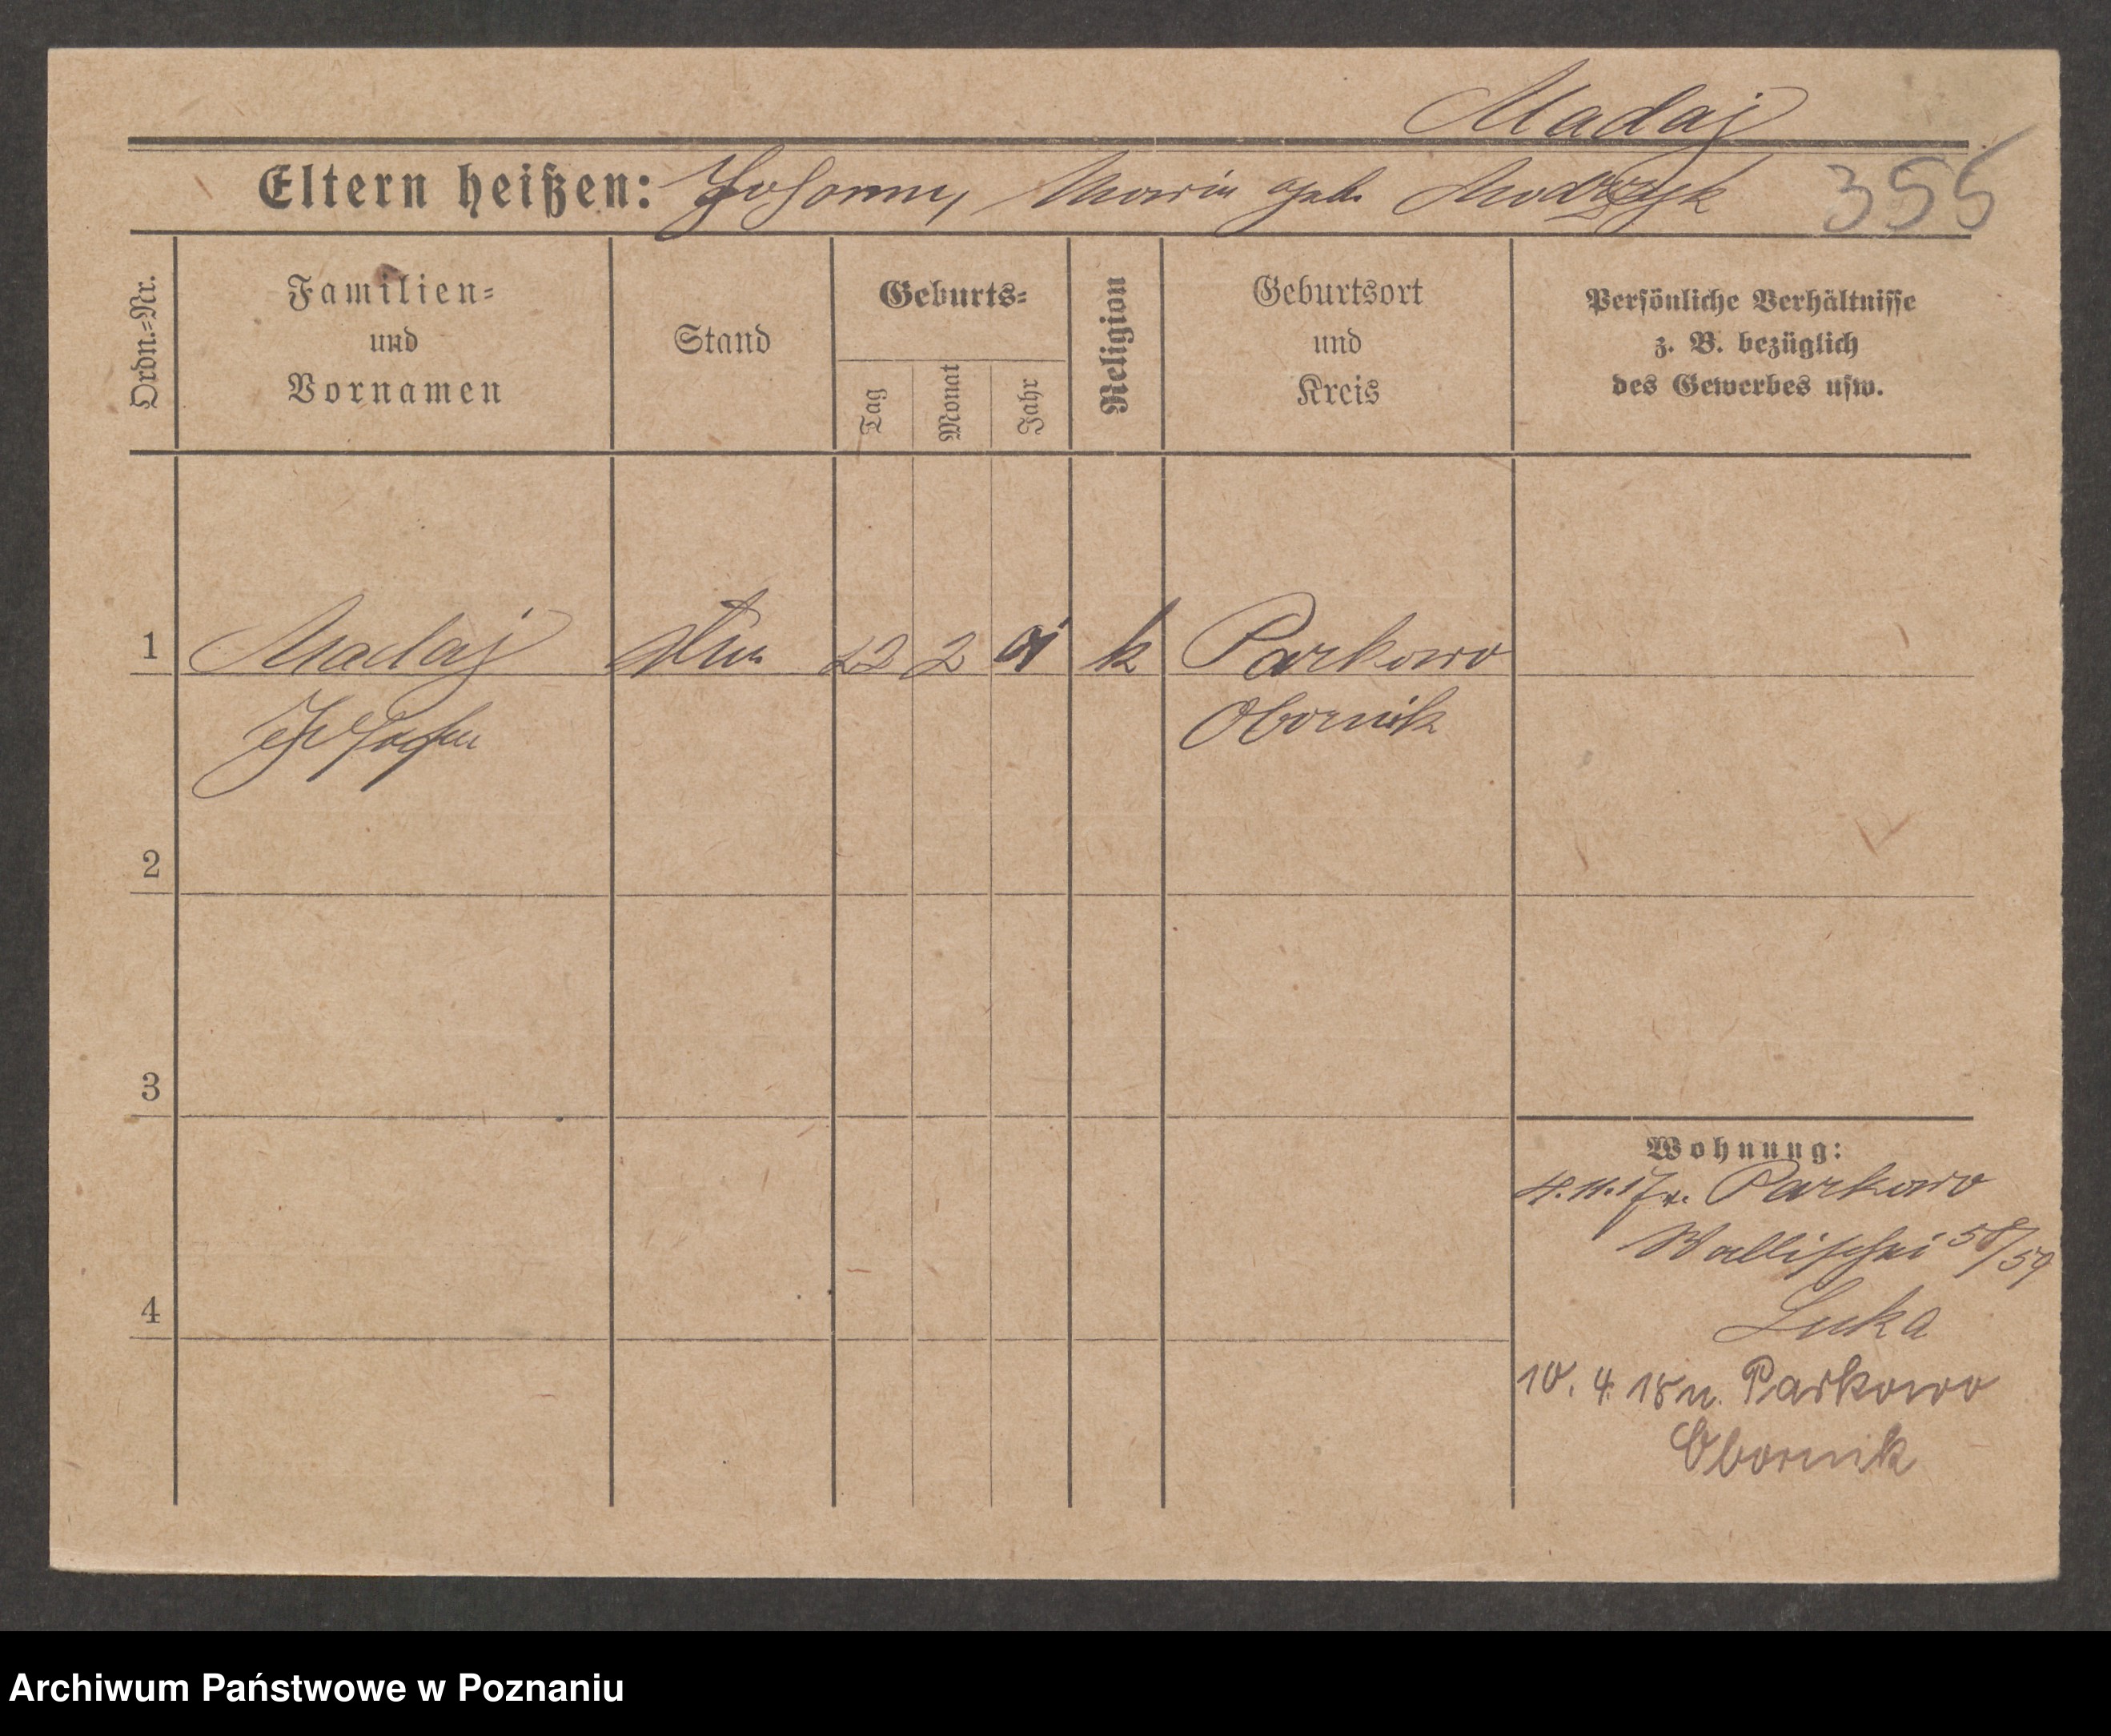 Madaj
Eltern heißen: Johann, Maria geb. 355
Ordn.=Nr.
Familien=
und
Vornamen
Stand
Geburts=
Tag
Monat
Jahr
Religion
Geburtsort
und
Kreis
Persönliche Verhältnisse
z. B. bezüglich
des Gewerbes usw.
1 Madaj 22 2 k Parkowo
Obornik
2
3
4
Wohnung:
4.11.17 v. Parkowo
Wallischei 58/59
Luka
10. 4. 18 n. Parkowo
Obornik
Archiwum Państwowe w Poznaniu